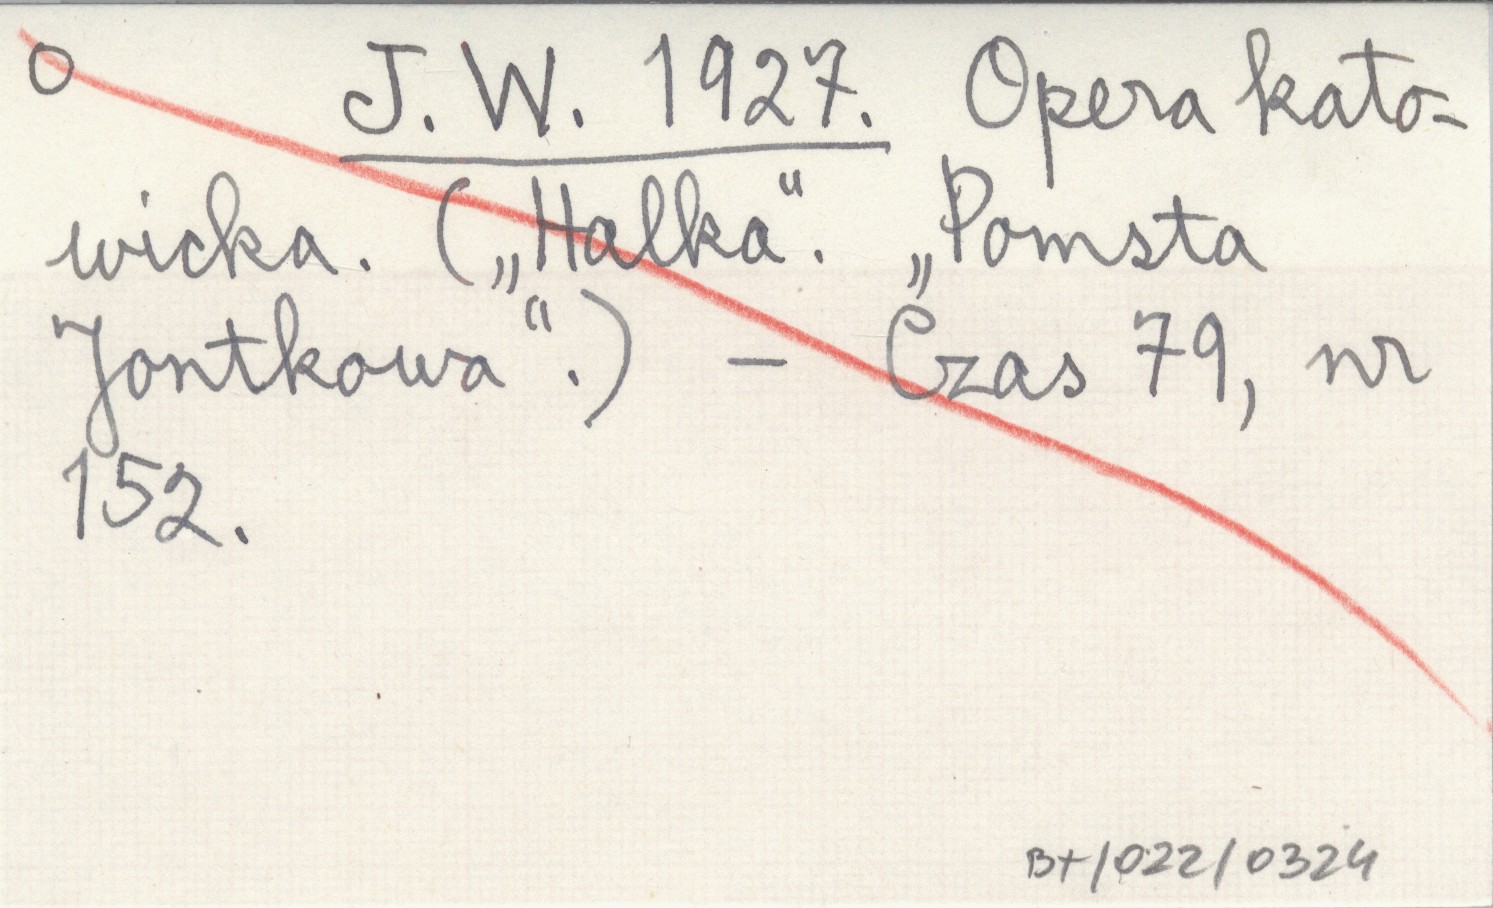 O J. W. 1927. Opera kato-
wicka. („Halka". „Pomsta
Jontkowa".) – Czas 79, nr
152.
B+/022/0324